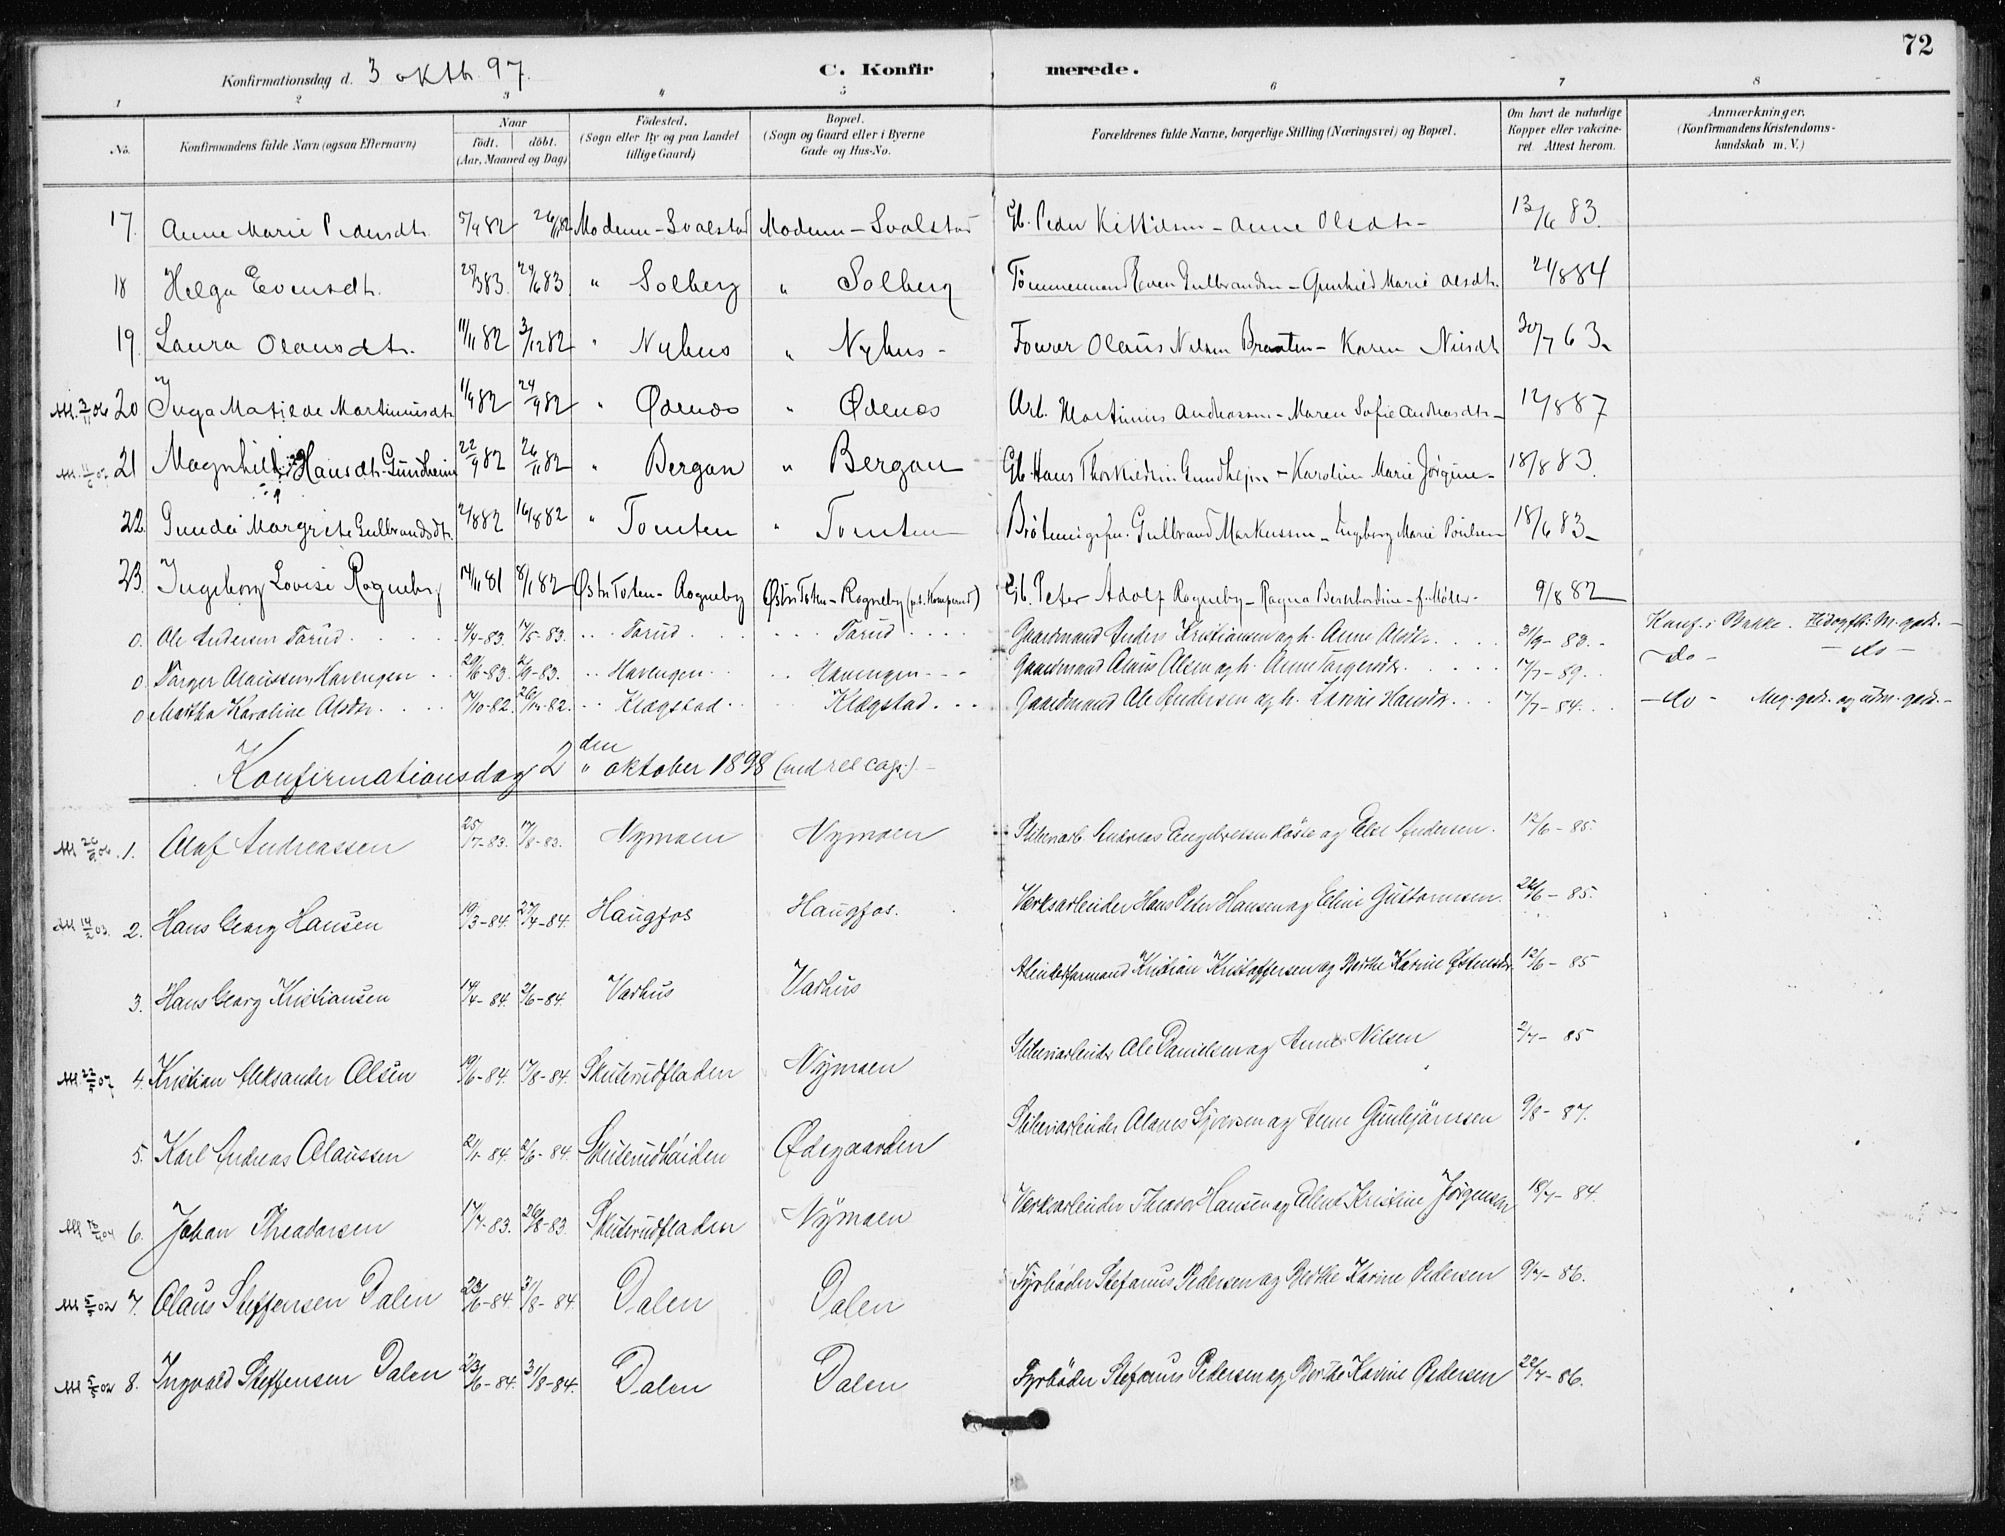 72
Konfirmationsdag d. 3 oktb. 97. C. Konfirmerede.
1 2 3 4 5 6 7 8
No. Konfirmandens fulde Navn (ogsaa Efternavn) Naar födt. döbt. (Aar, Maaned og Dag) Födested. (Sogn eller By og paa Landet tillige Gaard) Bopæl. (Sogn og Gaard eller i Byerne Gade og Hus-No. Forældrenes fulde Navne, borgerlige Stilling (Næringsvei) og Bopæl. Om havt de naturlige Kopper eller vakcineret. Attest herom. Anmærkninger. (Konfirmandens Kristendomskundskab m. V.)
17. Anne Marie Pedersdt. 5/4 82 26/ 82 Modum - Svalstad Modum - Svalstad Gb. Peder Kittilsen - Anne Olsdt - 13/6 83.
18 Helga Evensdt. 25/3 83. 24/6 83 " Solberg " Solberg Tömmermand Even Gulbrandsen - Gunhild Marie Olsdt. 24/8 84
19. Laura Olausdt. 11/11 82 3/12 82 " Nyhus " Nyhus - Olaus Nilsen Braaten - Karen Nilsdt 30/7 63.
20 Inga Matilde Martinusdt. 11/4 82 24/9 82 " Ødenæs " Ødenæs Arb. Martinus Andreassen - Maren Sofie Andreasdt - 12/8 87
21 Magnhild Hansdt. Gundheim 22/9 82 26/11 82 " Bergan " Bergan Gb. Hans Gundhejm - Karoline Marie Jørgine - 18/8 83.
22. Gunda Margrete Gulbrandsdt. 2/8 82 16/8 82 " Tomten " Tomten Gulbrand Markussen - Ingeborg Marie Poulsen 18/6 83 -
23. Ingeborg Lovise Rogneby 14/11 81 8/1 82 Østre Toten - Rogneby Østre Toten - Rogneby Gb. Peter Adolf Rogneby - Ragna Bernhardine - f. Möller - 9/8 82
0. Ole Andersen Tarud 4/4-83. 17/5-83. Tarud Tarud Gaardmand Anders Kristiansen og h. Anne Olsdtr. 31/9 - 83. - Konf. i Bakke. M. godt. -
0. Torger Olaussen Havengen 29/6-83. 2/9-83. Havengen Havengen Gaardmand Olaus Olsen og h. Anne Torgersdtr. 17/7-89. - do - - do -
0. Martha Karoline Olsdtr. 17/10-82. 26/12-82. Klægstad Klægstad Gaardmand Ole Andersen og h. Hansdtr. 17/7-84. - do - Meg. godt. og udm. godt. -
Konfirmationsdag 2den oktober 1898 (ved res cap:) -
M 26/9 06. 1. Olaf Andreassen 25/7-83. 17/8-83. Nymoen Nymoen Sliberiarb. Andreas Engebretsen og Else Andersen. 12/6 - 85.
M 14/2 03. 2. Hans Georg Hansen 19/3-84. 27/4-84. Haugfos Haugfos. Værksarbeider Hans Peter Hansen og Eline Guttormsen. 24/6 - 85.
3. Hans Georg Kristiansen 14/4-84. 2/6-84. Varhus Varhus Arbeidsformand Kristian Kristoffersen og Berthe Karine 12/6 - 85
M 22/5 07 4. Kristian Aleksander Olsen 19/6-84. 17/8-84. Skuterudfladen Nymoen Sliberiarbeider Ole Danielsen og Anne Nilsen 2/7 - 85
5. Karl Andreas Olaussen 21/1-84. 2/6-84. Skuterudheiden Ødegaarden Sliberiarbeider Olaves Syversen og Anne Gunbjörnssen 9/8 - 87.
6. Johan Theadorsen 17/7-83. 26/8-83. Skuterudfladen Nymoen Værksarbeider Theodor Hansen og Eline Kristine Jørgensen 18/7 - 84.
M 5/5 02 7. Olaus Steffensen Dalen 23/6-84. 31/8-84. Dalen Dalen Fyrbøder Stefanus Pedersen og Berthe Karine Pedersen 9/7-86.
M 5/5 02 8. Ingvald Steffensen Dalen 23/6-84. 31/8-84. Dalen Dalen Fyrbøder Stefanus Pedersen og Berthe Karine Pedersen 22/7-86.